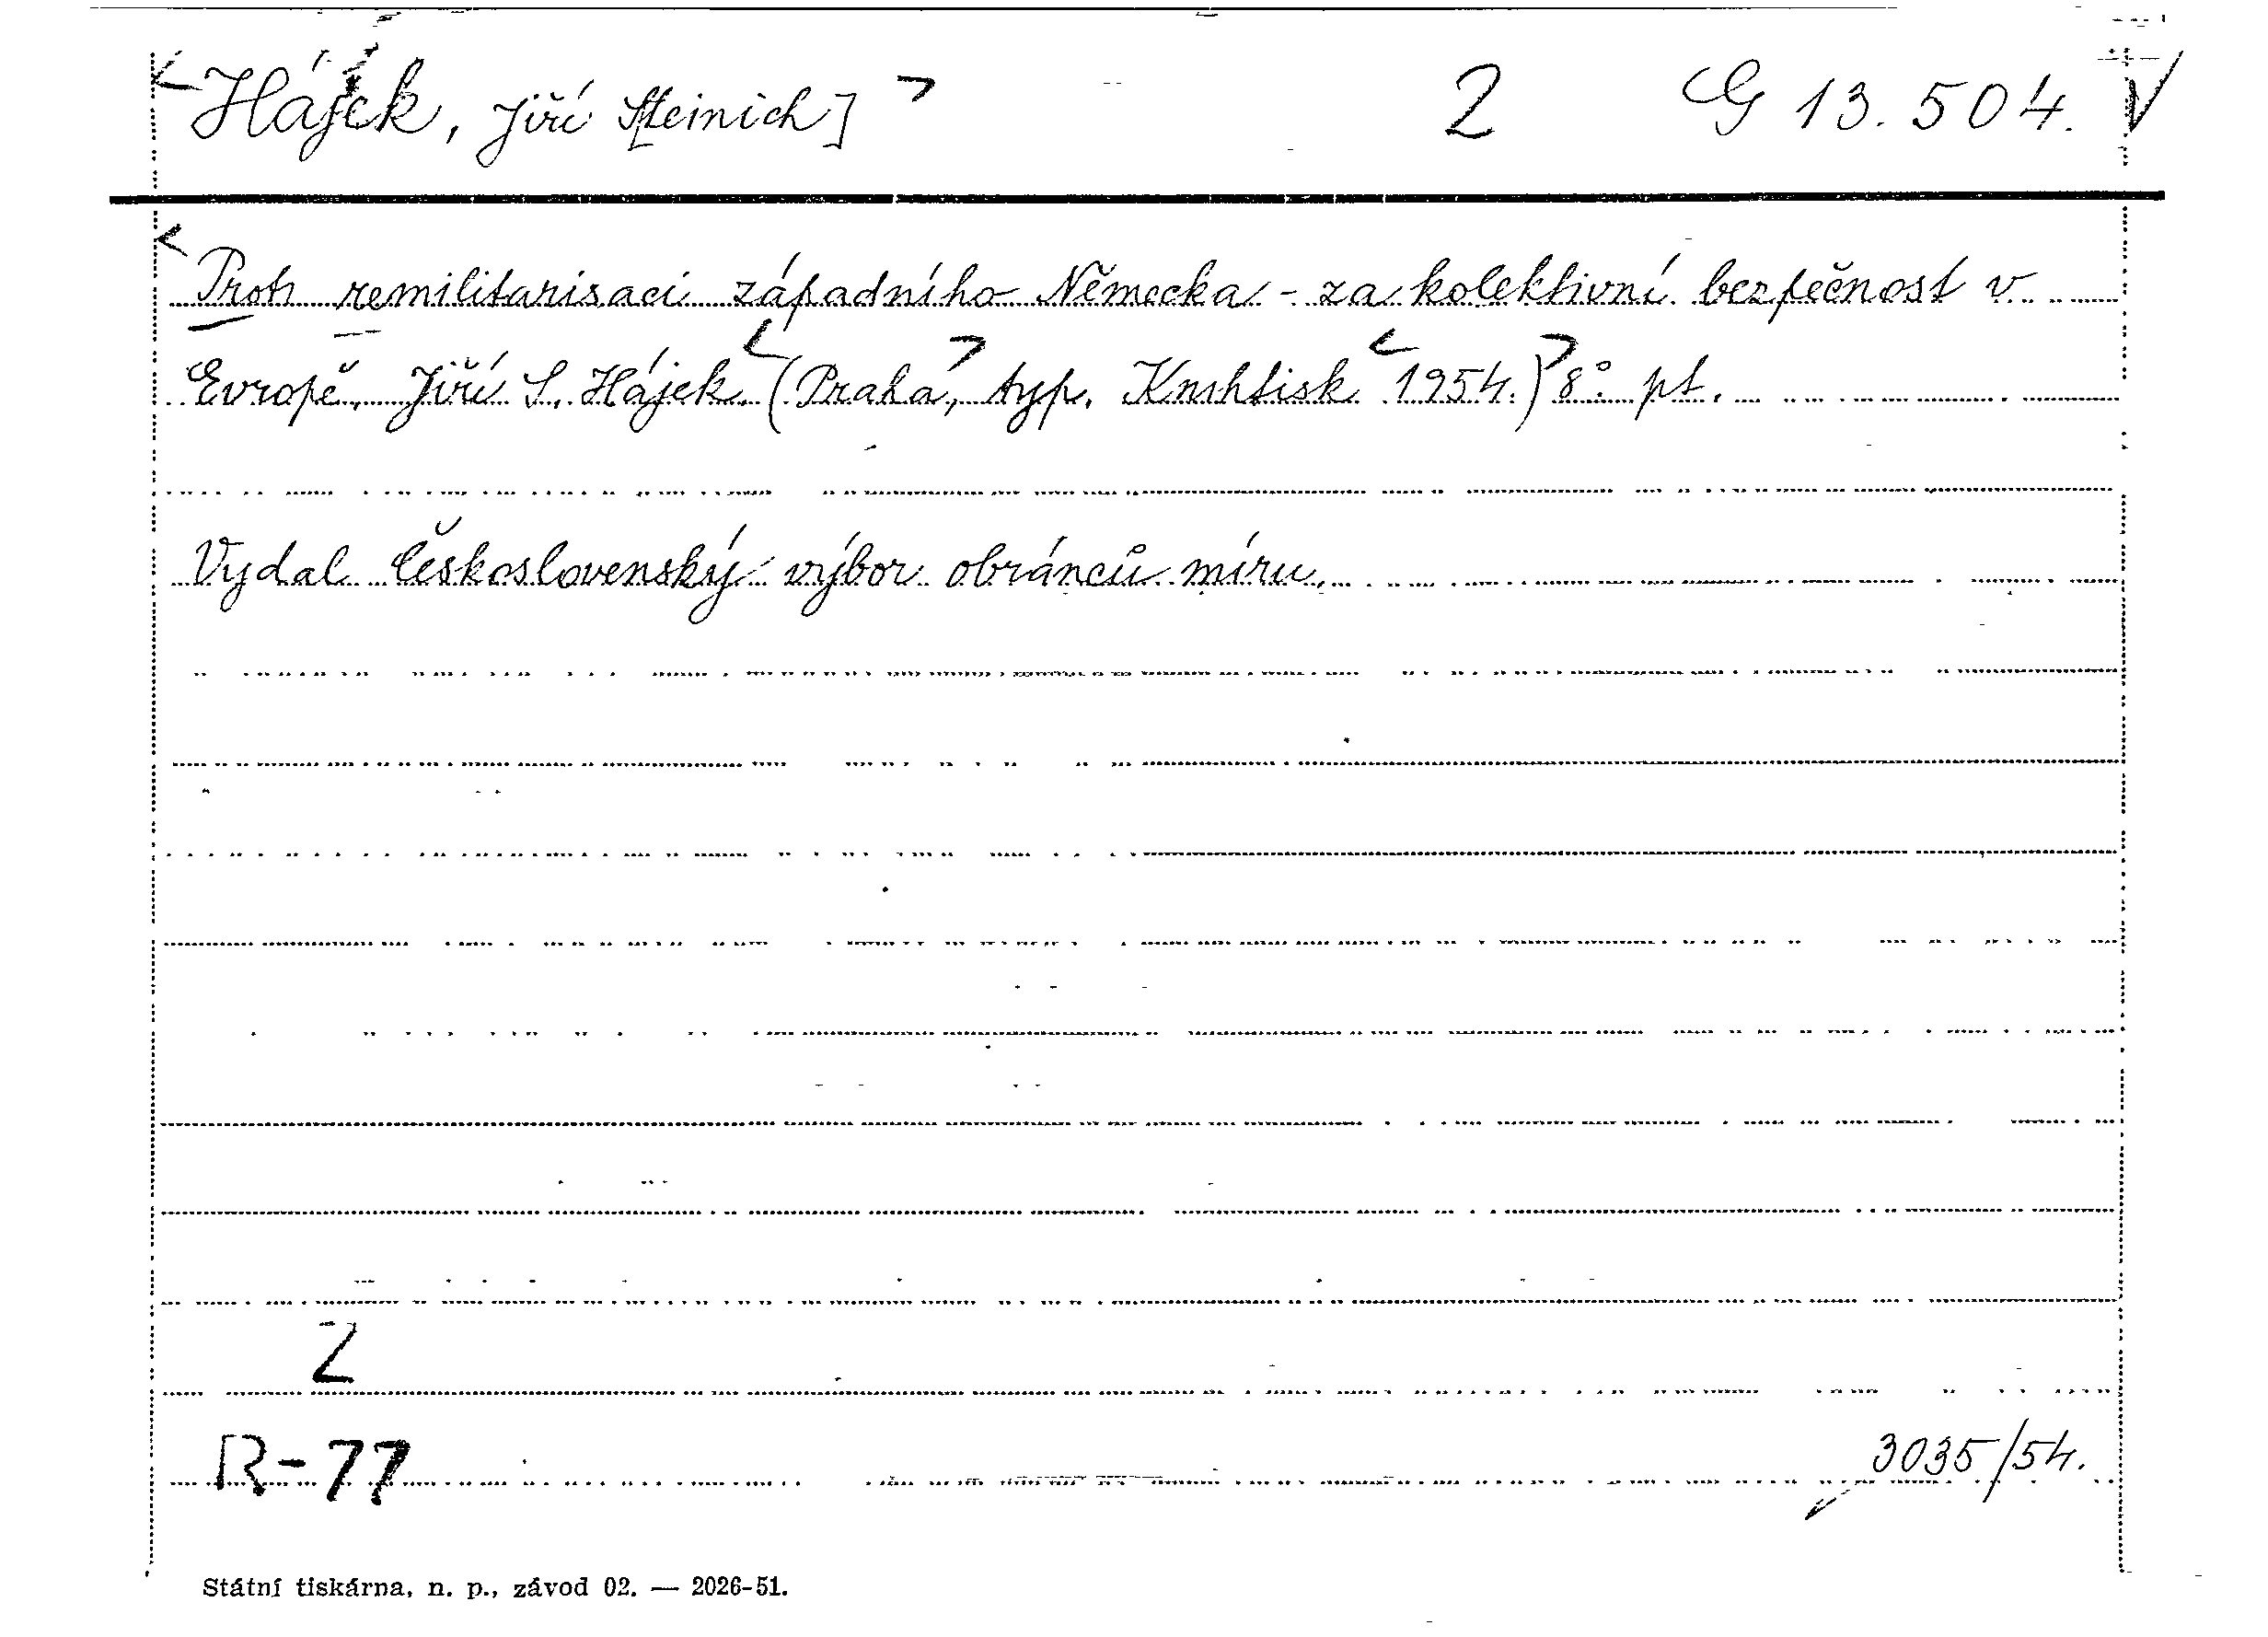 Hájek, Jiří S[teinich] 2 G 13.504. V
Proti remilitarisaci západního Německa - za kolektivní bezpečnost v
Evropě. Jiří S. Hájek. (Praha, typ. Knihtisk 1954.) 8° pt.
Vydal Československý výbor obránců míru.
Z
R-77
3035/54.
Státní tiskárna, n. p., závod 02. — 2026-51.